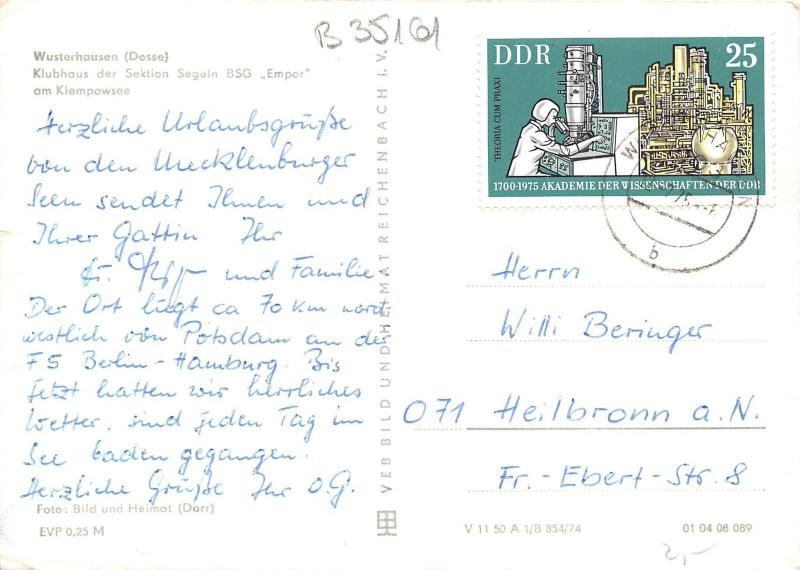 B 35161
Wusterhausen (Dosse)
Klubhaus der Sektion Segeln BSG „Empor"
am Klempowsee
Herzliche Urlaubsgrüße
von den Mecklenburger
Seen sendet Ihnen und
Ihrer Gattin Ihr
und Familie
Der Ort liegt ca 70 km nord-
westlich von Potsdam an der
F5 Berlin-Hamburg. Bis
jetzt hatten wir herrliches
Wetter, sind jeden Tag im
See baden gegangen.
Herzliche Grüße Ihr O.G.
Foto: Bild und Heimat (Darr)
EVP 0,25 M
VEB BILD UND HEIMAT REICHENBACH i. V.
DDR 25
THEORIA CUM PRAXI
1700-1975 AKADEMIE DER WISSENSCHAFTEN DER DDR
b
Herrn
Willi Beringer
071 Heilbronn a.N.
Fr.-Ebert-Str. 8
V 11 50 A 1/B 854/74
01 04 08 089
2,-